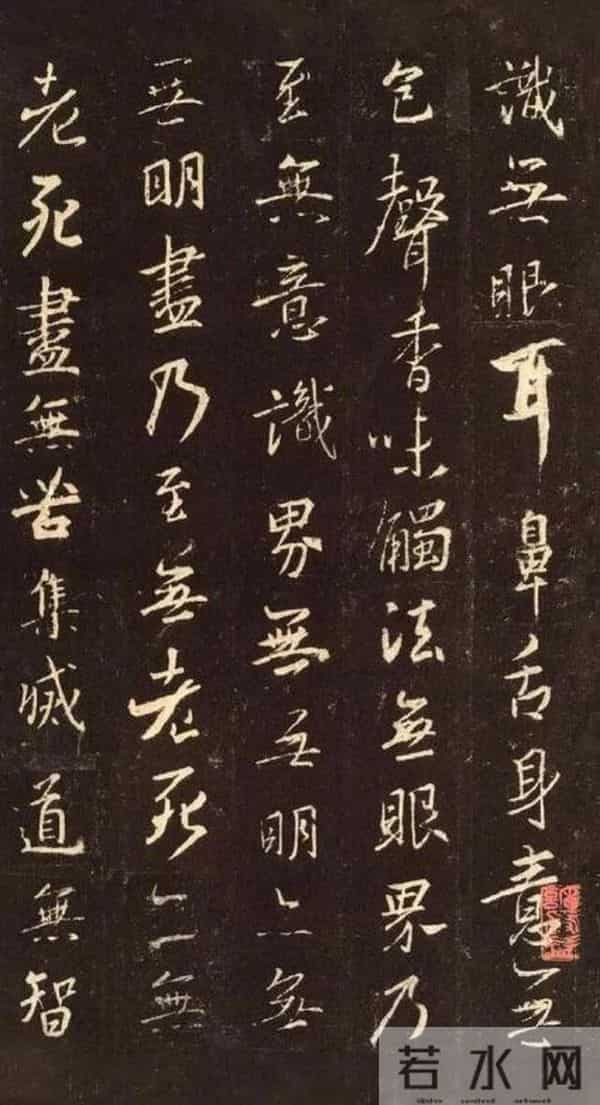 識無眼耳鼻舌身意無
色聲香味觸法無眼界乃
至無意識界無無明亦無
無明盡乃至無老死亦無
老死盡無苦集滅道無智
若水网